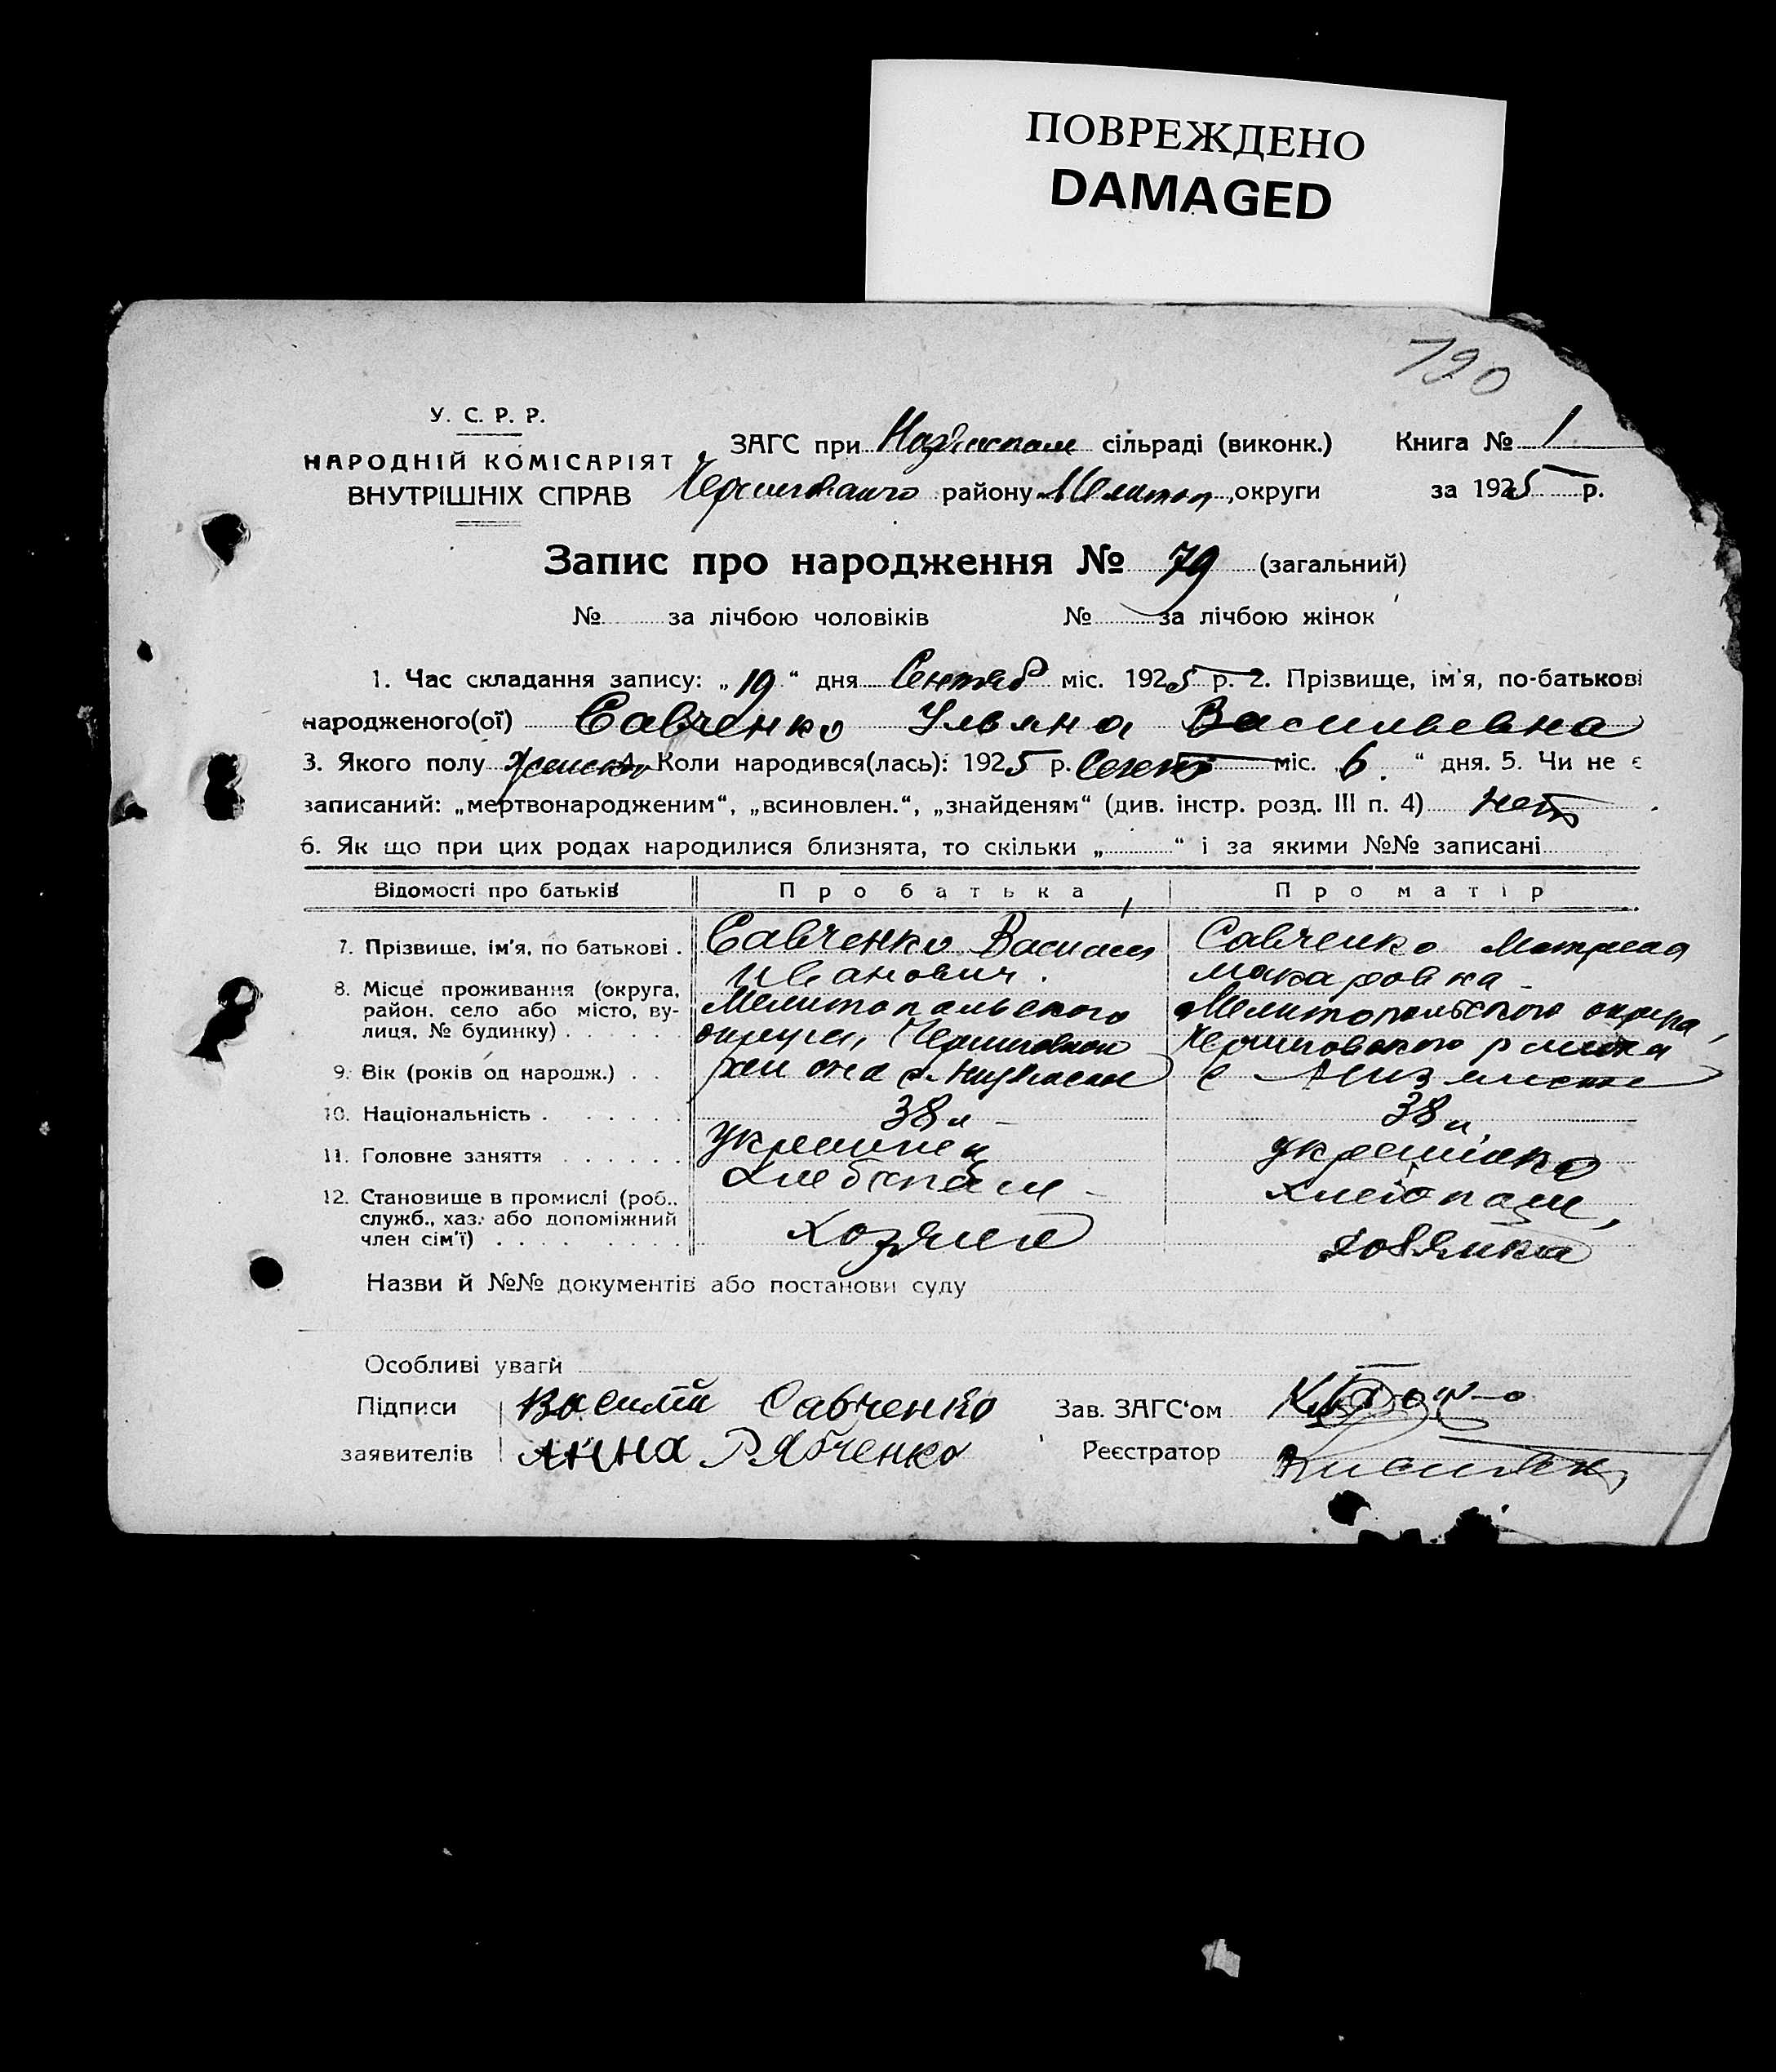 ПОВРЕЖДЕНО
DAMAGED
190
У. С. Р. Р.
НАРОДНІЙ КОМІСАРІЯТ
ВНУТРІШНІХ СПРАВ
ЗАГС при сільраді (виконк.) Книга № 1
району Мелитоп. округи за 1925 р.
Запис про народження № 79 (загальний)
№ за лічбою чоловіків № за лічбою жінок
1. Час складання запису: „19“ дня Сентяб міс. 1925 р. 2. Прізвище, ім'я, по-батькові
народженого(ої) Савченко Ульяна Васильевна
3. Якого полу женско 4. Коли народився(лась): 1925 р. Сент міс. 6 “ дня. 5. Чи не є
записаний: „мертвонародженим“, „всиновлен.“, „знайденям“ (див. інстр. розд. III п. 4) нет
6. Як що при цих родах народилися близнята, то скільки „ “ і за якими №№ записані
Відомості про батьків Про батька Про матір
7. Прізвище, ім'я, по батькові . Савченко Василий Савченко Матрена
Иванович. Макаровна
8. Місце проживання (округа, район, село або місто, вулиця, № будинку) . . . . . . Мелитопальского Мелитопольского округа,
округи, Черниговскои Черниговского района
района с. с
9. Вік (років од народж.) . . 38 л 38 л,
10. Національність . . . . . . украинец украинка
11. Головне заняття . . . . . . хлебопаш хлебопаш,
12. Становище в промислі (роб., служб., хаз. або допоміжний член сім'ї) . . . . . . . . . хозяин хозяйка
Назви й №№ документів або постанови суду
Особливі уваги
Підписи Василий Савченко Зав. ЗАГС'ом
заявителів Анна Рябченко Реєстратор